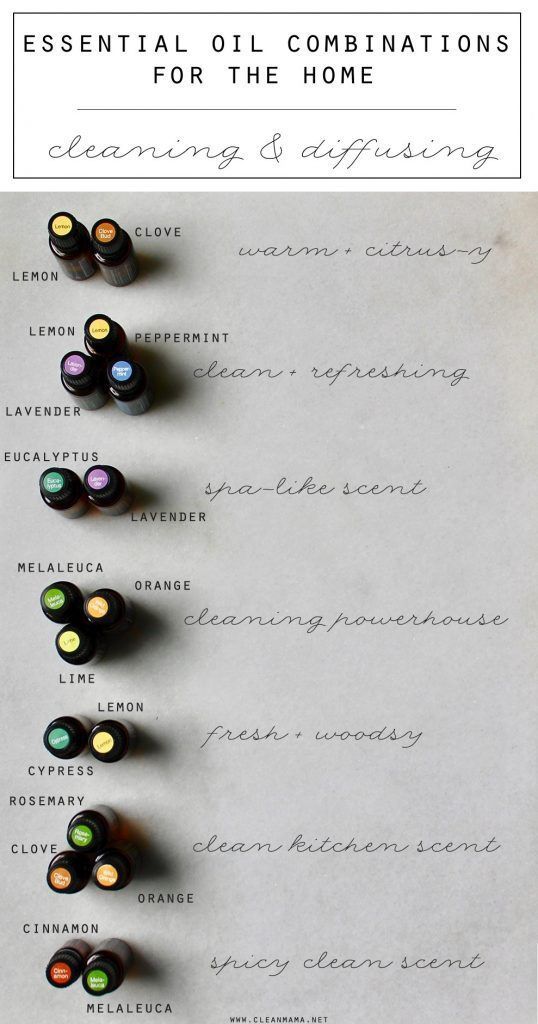 ESSENTIAL OIL COMBINATIONS
FOR THE HOME
cleaning & diffusing
Lemon
Clove
Bud
CLOVE
LEMON
warm + citrus-y
LEMON
Lemon
PEPPERMINT
Laven-
der
Pepper
mint
LAVENDER
clean + refreshing
EUCALYPTUS
Euca-
lyptus
Laven-
der
LAVENDER
spa-like scent
MELALEUCA
ORANGE
Mela-
leuca
Wild
Orange
Lime
LIME
cleaning powerhouse
LEMON
Cypress
Lemon
CYPRESS
fresh + woodsy
ROSEMARY
Rose-
mary
CLOVE
Clove
Bud
Wild
Orange
ORANGE
clean kitchen scent
CINNAMON
Cinn-
amon
Mela-
leuca
MELALEUCA
spicy clean scent
WWW.CLEANMAMA.NET